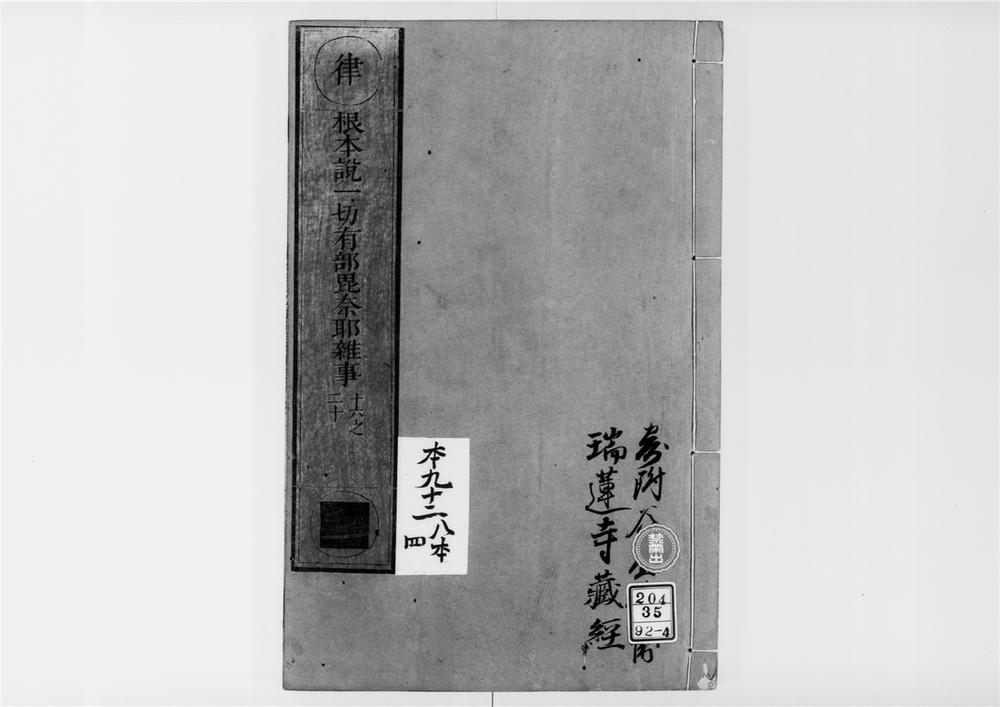 律
根本說一切有部毘奈耶雜事
十六之
二十
本九十二八本
四
附
瑞蓮寺藏經
禁帶出
204
35
92-4